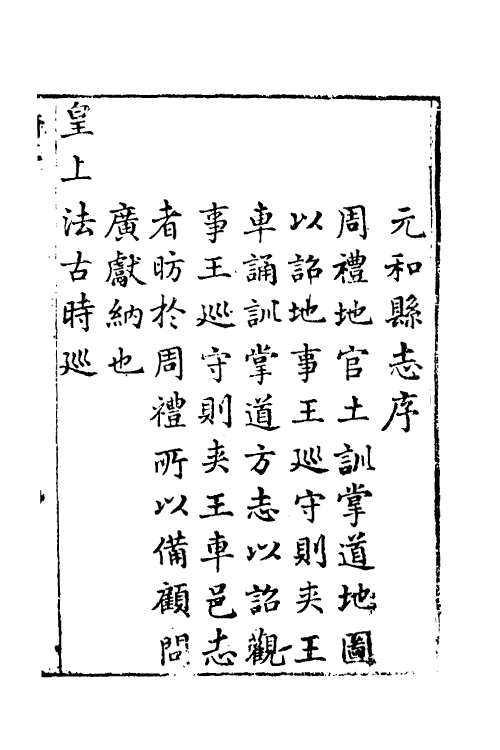 元和縣志序
周禮地官土訓掌道地圖
以詔地事王廵守則夾王
車誦訓掌道方志以詔觀
事王廵守則夾王車邑志
者昉於周禮所以備顧問
廣獻納也
皇上
法古時廵